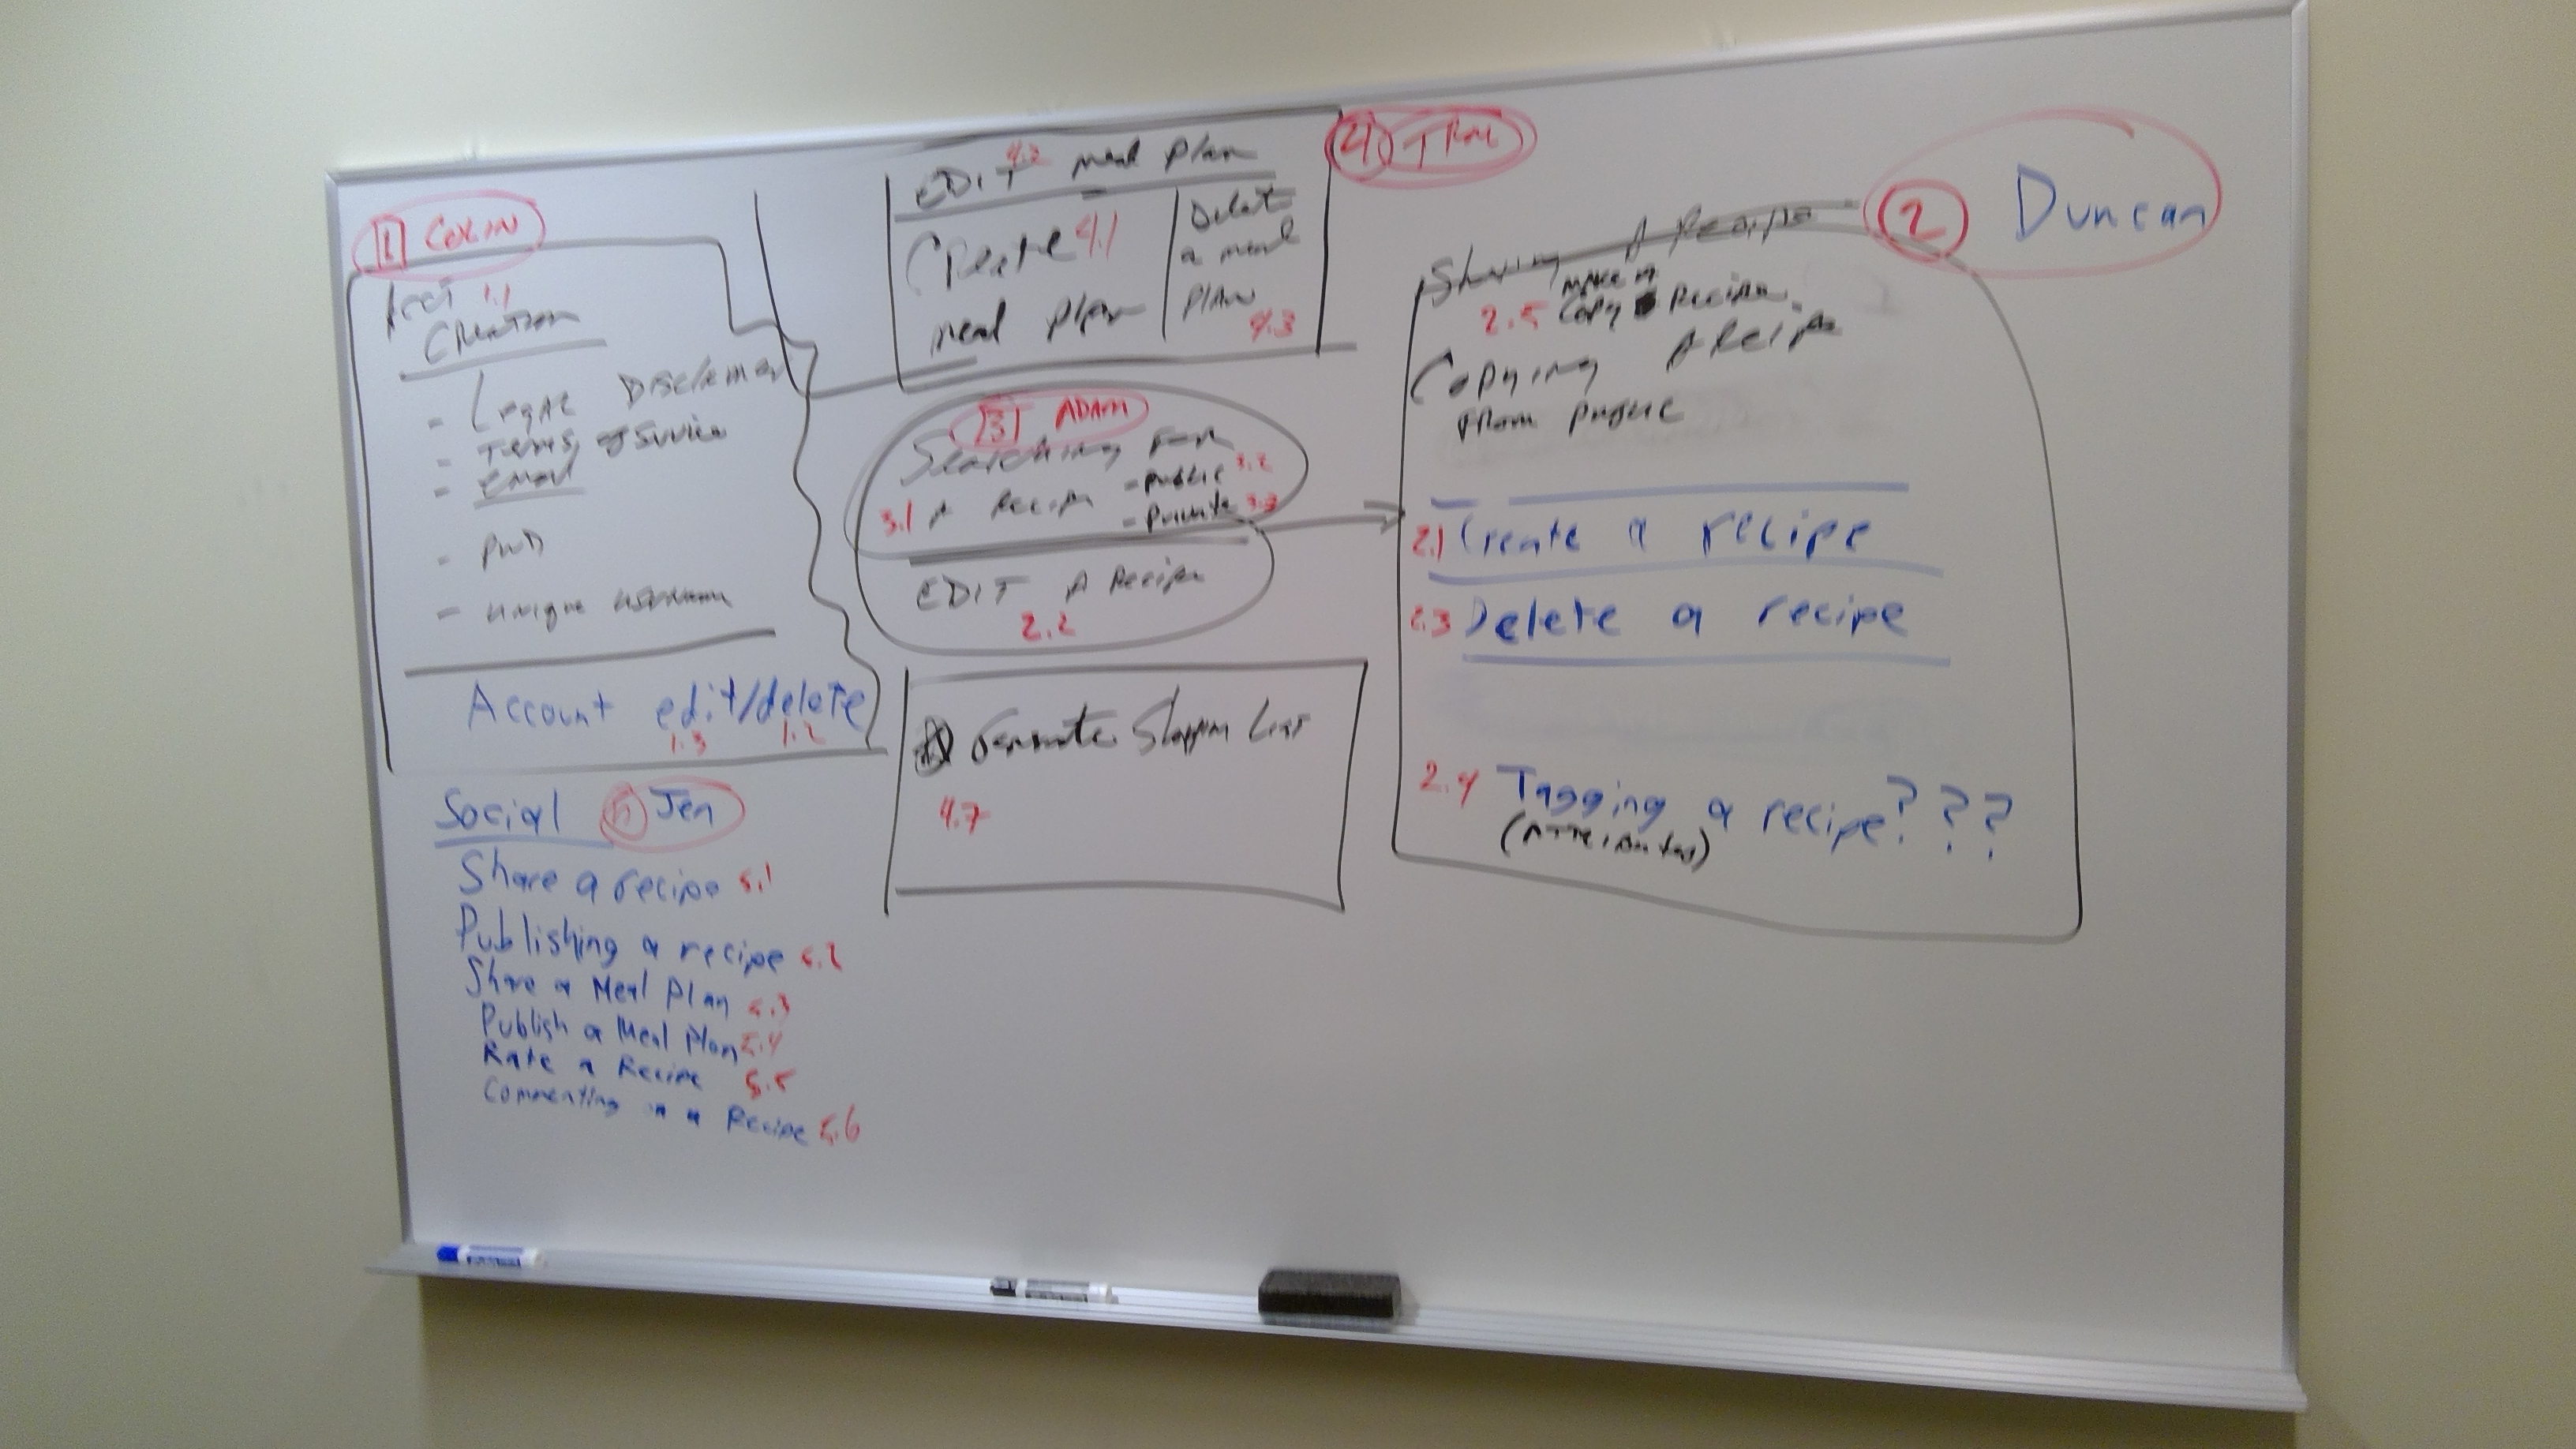 1 COLIN
Acct 1.1
Creation
- Legal Disclaimer
- Terms of Service
- email
- PWD
- unique username
Account edit/delete
1.3 1.2
Social 5 Jen
Share a recipe 5.1
Publishing a recipe 5.2
Share a Meal Plan 5.3
Publish a Meal Plan 5.4
Rate a Recipe 5.5
Commenting on a Recipe 5.6
4
EDIT 4.2 meal plan
Create 4.1
meal plan
Delete
a meal
PLAN
4.3
3 ADAM
Searching for
3.1 A Recipe - public 3.2
- private 3.3
EDIT A Recipe
2.2
Generate Shoppin List
4.7
2 Duncan
Sharing A Recipe
make a
2.5 Copy Recipe
Copying A Recipe
From public
2.1 Create a recipe
2.3 Delete a recipe
2.4 Tagging a recipe? ? ?
(Attributes)